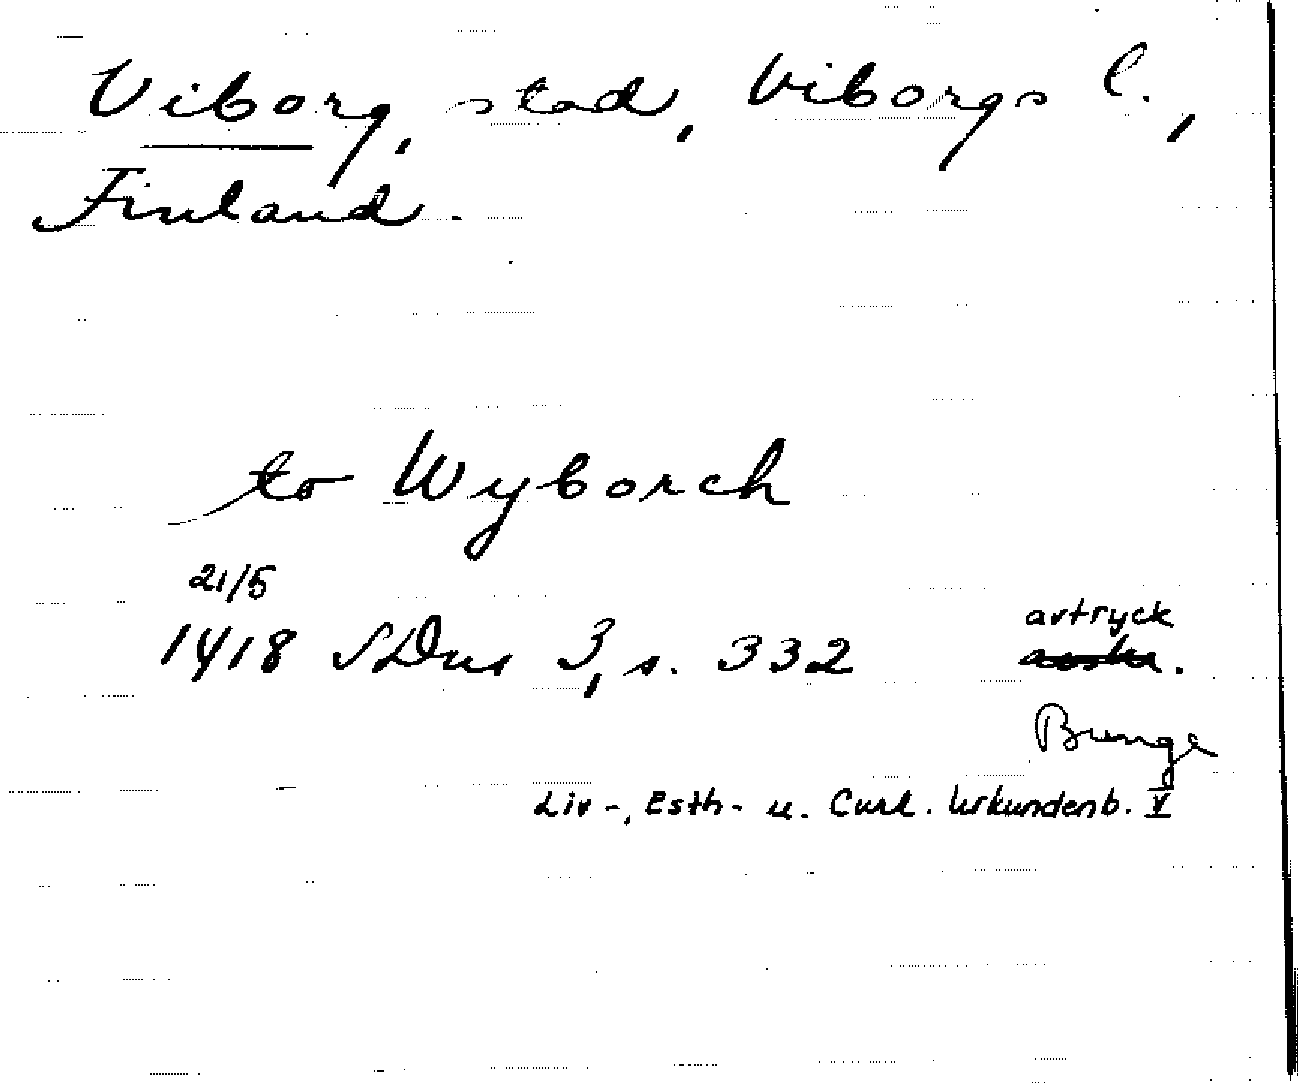 Viborg, stad, Viborgs l.,
Finland.
to Wyborch
21/5
1418 SDns 3, s. 332 avtryck
Bunge
Liv-, Esth- u. Curl. Urkundenb. V